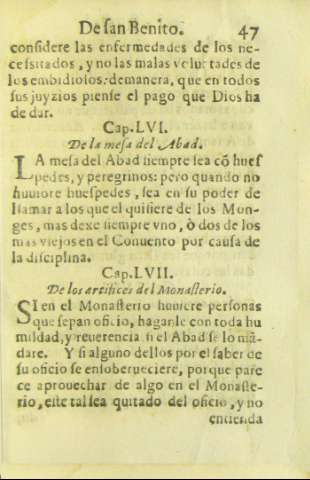 De san Benito. 47
considere las enfermedades de los ne-
cessitados, y no las malas voluntades de
los embidiosos: demanera, que en todos
sus juyzios piense el pago que Dios ha
de dar.
Cap. LVI.
De la mesa del Abad.
LA mesa del Abad siempre sea cõ hues
pedes, y peregrinos: pero quando no
huuiere huespedes, sea en su poder de
llamar a los que el quisiere de los Mon-
ges, mas dexe siempre vno, ò dos de los
mas viejos en el Conuento por causa de
la disciplina.
Cap. LVII.
De los artifices del Monasterio.
SI en el Monasterio huuiere personas
que sepan oficio, haganle con toda hu
mildad, y reuerencia si el Abad se lo mã-
dare. Y si alguno dellos por el saber de
su oficio se ensoberueciere, porque pare
ce aprouechar de algo en el Monaste-
rio, este tal sea quitado del oficio, y no
entienda